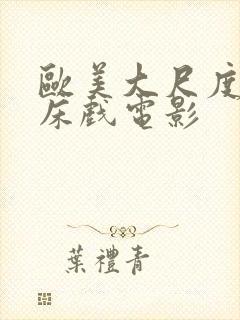 歐美大尺度
床戲電影
葉禮青